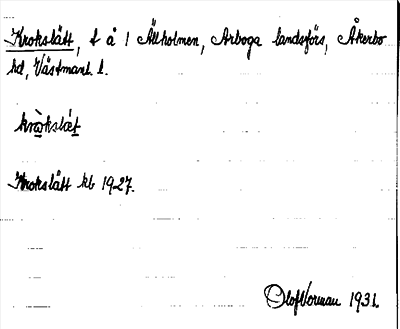 Krokslått, t å 1 Ällholmen, Arboga landsförs, Åkerbo
hd, Västmanl. l.
kròkslåt
Krokslått kb 1927.
Olof Norman 1931.